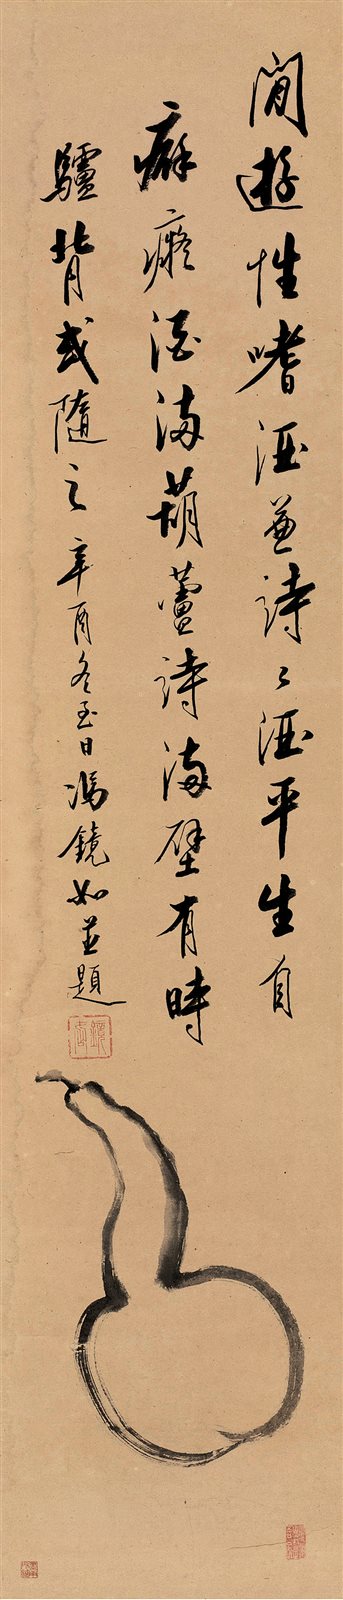 閒遊性嗜酒兼詩〻酒平生自
癖癡酒滿葫蘆詩滿壁有時
驢背或隨之辛酉冬至日馮鏡如並題